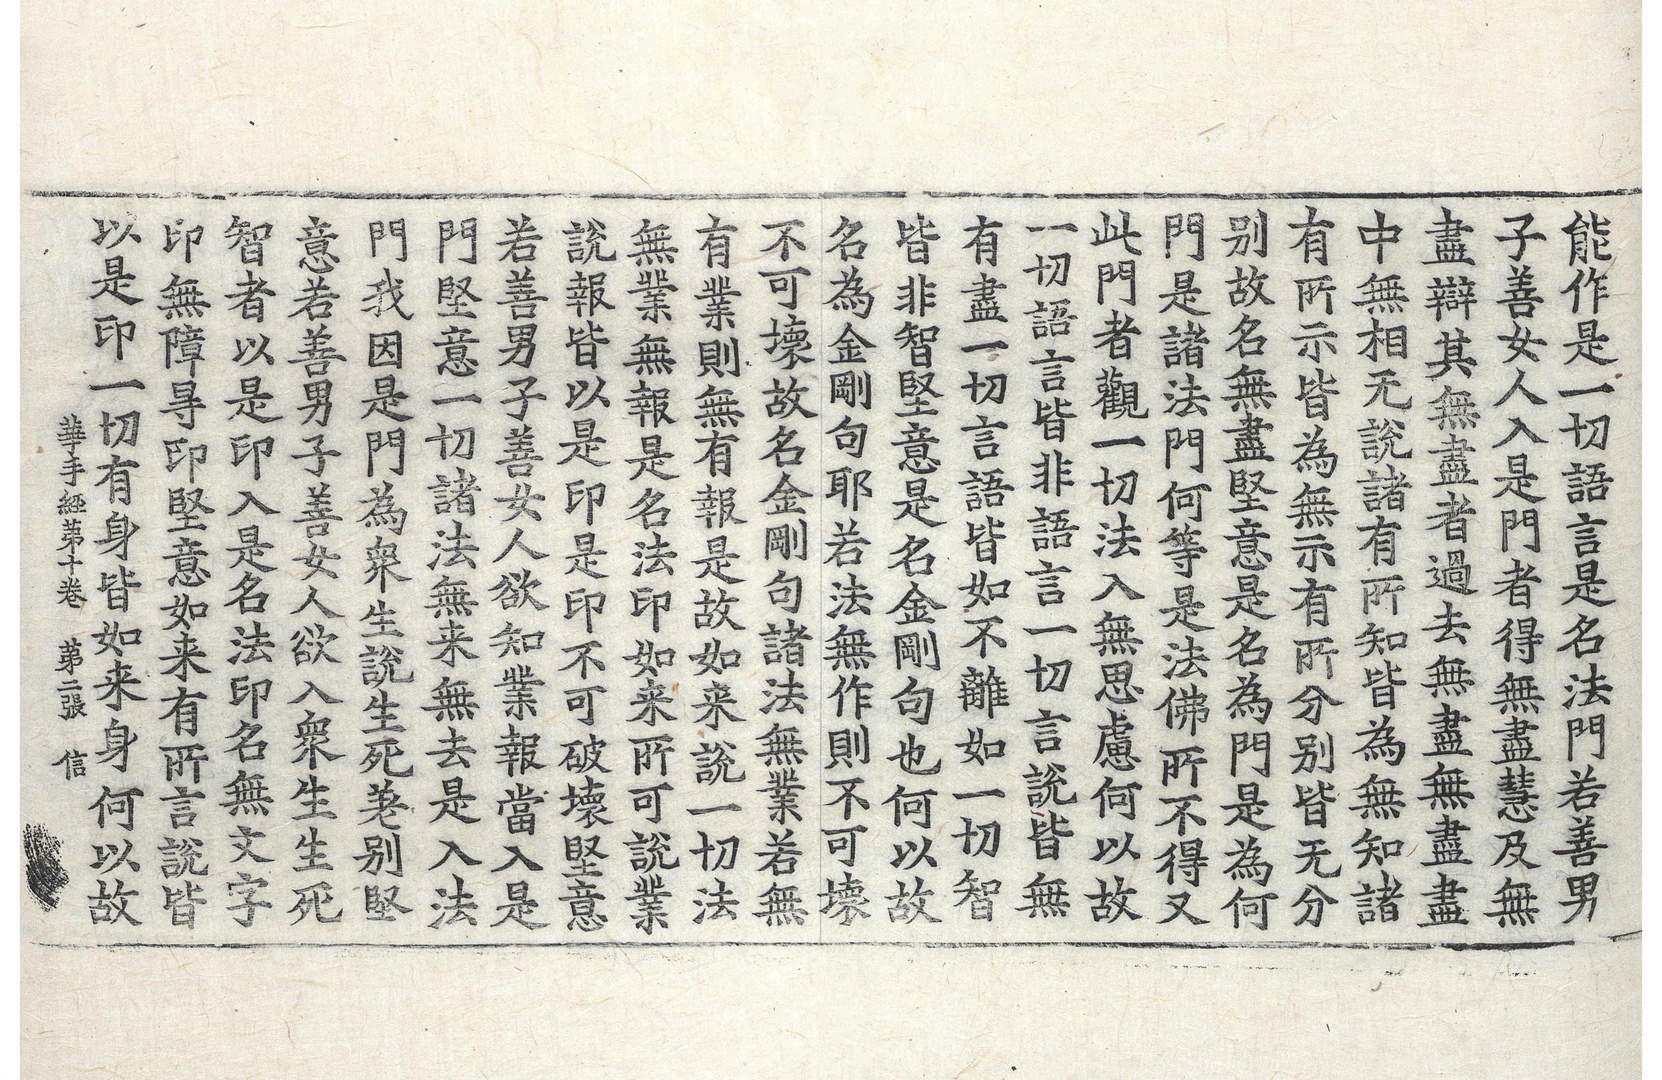 能作是一切語言是名法門若善男
子善女人入是門者得無盡慧及無
盡辯其無盡者過去無盡無盡盡
中無相无說諸有所知皆為無知諸
有所示皆為無示有所分別皆无分
別故名無盡堅意是名為門是為何
門是諸法門何等是法佛所不得又
此門者觀一切法入無思慮何以故
一切語言皆非語言一切言說皆無
有盡一切言語皆如不離如一切智
皆非智堅意是名金剛句也何以故
名為金剛句耶若法無作則不可壞
不可壞故名金剛句諸法無業若無
有業則無有報是故如来說一切法
無業無報是名法印如来所可說業
說報皆以是印是印不可破壞堅意
若善男子善女人欲知業報當入是
門堅意一切諸法無来無去是入法
門我因是門為衆生說生死差別堅
意若善男子善女人欲入衆生生死
智者以是印入是名法印名無文字
印無障㝵印堅意如来有所言說皆
以是印一切有身皆如来身何以故
華手經第十卷 第二張 信